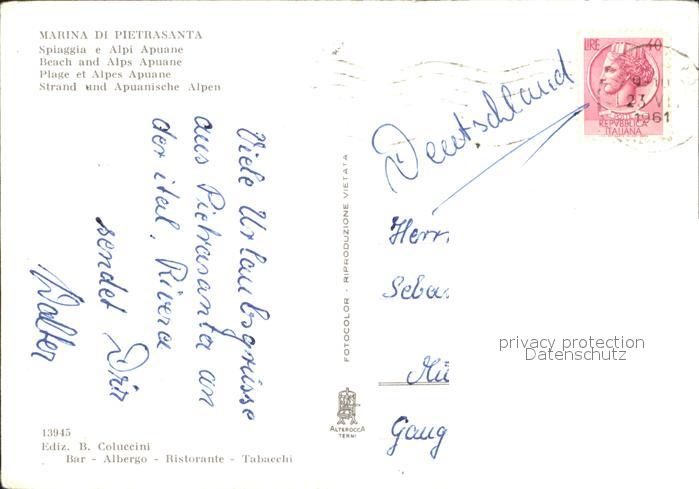 MARINA DI PIETRASANTA
Spiaggia e Alpi Apuane
Beach and Alps Apuane
Plage et Alpes Apuane
Strand und Apuanische Alpen
Viele Urlaubsgrüsse
aus Pietrasanta an
der ital. Rivera
sendet Dir
Walter
13945
Ediz. B. Coluccini
Bar - Albergo - Ristorante - Tabacchi
FOTOCOLOR - RIPRODUZIONE VIETATA
ALTEROCCA
TERNI
LIRE 40
REPVBBLICA
ITALIANA
23 V
1961
Deutschland
Herr
Sebas
Mü
Gaug
privacy protection
Datenschutz